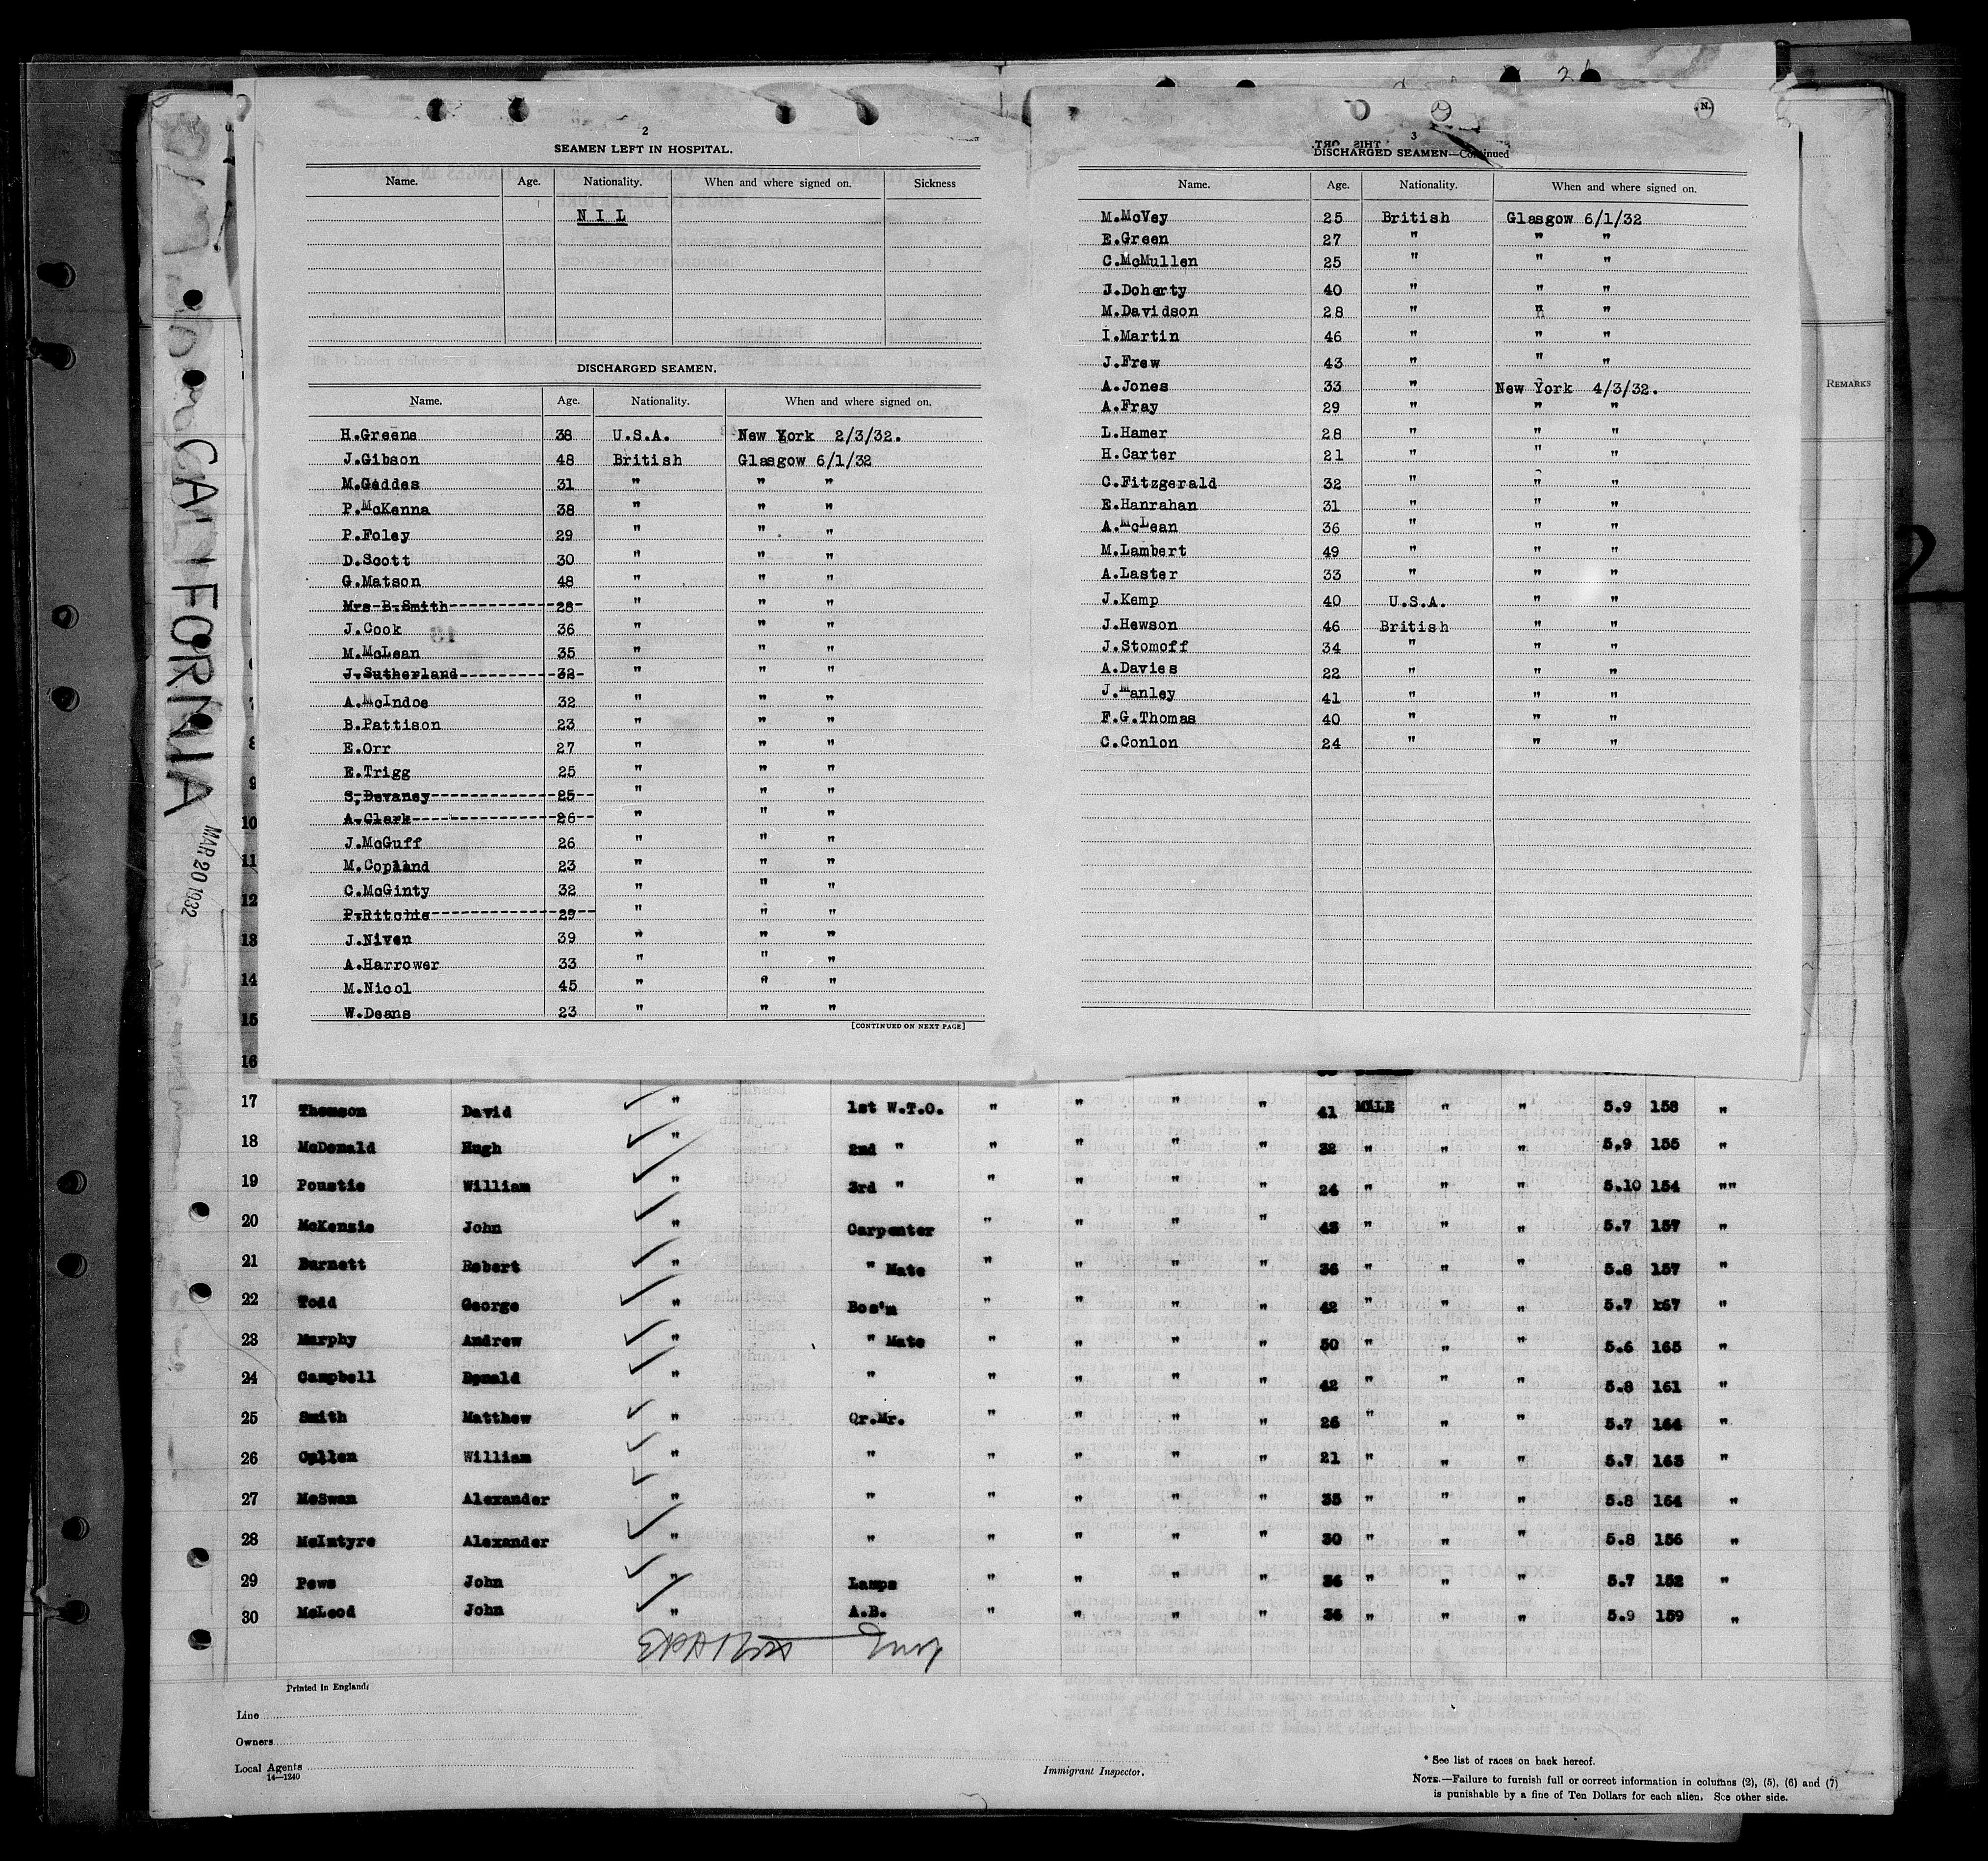 2
SEAMEN LEFT IN HOSPITAL.
Name. Age. Nationality. When and where signed on. Sickness
N I L
DISCHARGED SEAMEN.
Name. Age. Nationality. When and where signed on.
H.Greene 38 U.S.A. New York 2/3/32.
J.Gibson 48 British Glasgow 6/1/32
M.Geddes 31 " " "
P.McKenna 38 " " "
P.Foley 29 " " "
D.Scott 30 " " "
G.Matson 48 " " "
Mrs B.Smith 28 " " "
J.Cook 36 " " "
M.McLean 35 " " "
J.Sutherland 32 " " "
A.McIndoe 32 " " "
B.Pattison 23 " " "
E.Orr 27 " " "
E.Trigg 25 " " "
S,Devaney 25 " " "
A.Clark 26 " " "
J.McGuff 26 " " "
M.Copland 23 " " "
C.McGinty 32 " " "
P.Ritchie 29 " " "
J.Niven 39 " " "
A.Harrower 33 " " "
M.Nicol 45 " " "
W.Deans 23 " " "
[CONTINUED ON NEXT PAGE]
3
DISCHARGED SEAMEN—Continued
Name. Age. Nationality. When and where signed on.
M.McVey 25 British Glasgow 6/1/32
E.Green 27 " " "
C.McMullen 25 " " "
J.Doherty 40 " " "
M.Davidson 28 " " "
I.Martin 46 " " "
J.Frew 43 " " "
A.Jones 33 " New York 4/3/32.
A.Fray 29 " " "
L.Hamer 28 " " "
H.Carter 21 " " "
C.Fitzgerald 32 " " "
E.Hanrahan 31 " " "
A.McLean 36 " " "
M.Lambert 49 " " "
A.Laster 33 " " "
J.Kemp 40 U.S.A. " "
J.Hewson 46 British " "
J.Stomoff 34 " " "
A.Davies 22 " " "
J.Manley 41 " " "
F.G.Thomas 40 " " "
C.Conlon 24 " " "
REMARKS
CALIFORNIA
MAR 20 1932
8
9
10
11
12
13
14
15
16
17 Thomson David " 1st W.T.O. " " " " 41 MALE " " 5.9 158 "
18 McDonald Hugh " 2nd " " " " " 32 " " " 5.9 155 "
19 Poustie William " 3rd " " " " " 24 " " " 5.10 154 ""
20 McKenzie John " Carpenter " " " " 45 " " " 5.7 157 "
21 Burnett Robert " " Mate " " " " 36 " " " 5.8 157 "
22 Todd George " Bos'n " " " " 42 " " " 5.7 167 "
23 Murphy Andrew " " Mate " " " " 50 " " " 5.6 165 "
24 Campbell Donald " " " " " " 42 " " " 5.8 161 "
25 Smith Matthew " Qr.Mr. " " " " 26 " " " 5.7 164 "
26 Cullen William " " " " " " 21 " " " 5.7 163 "
27 McSwan Alexander " " " " " " 35 " " " 5.8 164 "
28 McIntyre Alexander " " " " " " 30 " " " 5.8 156 "
29 Pews John " Lamps " " " " 36 " " " 5.7 152 "
30 McLeod John " A.B. " " " " 36 " " " 5.9 159 "
Printed in England.
Line
Owners
Local Agents
14—1240
Immigrant Inspector.
* See list of races on back hereof.
NOTE.—Failure to furnish full or correct information in columns (2), (5), (6) and (7)
is punishable by a fine of Ten Dollars for each alien. See other side.